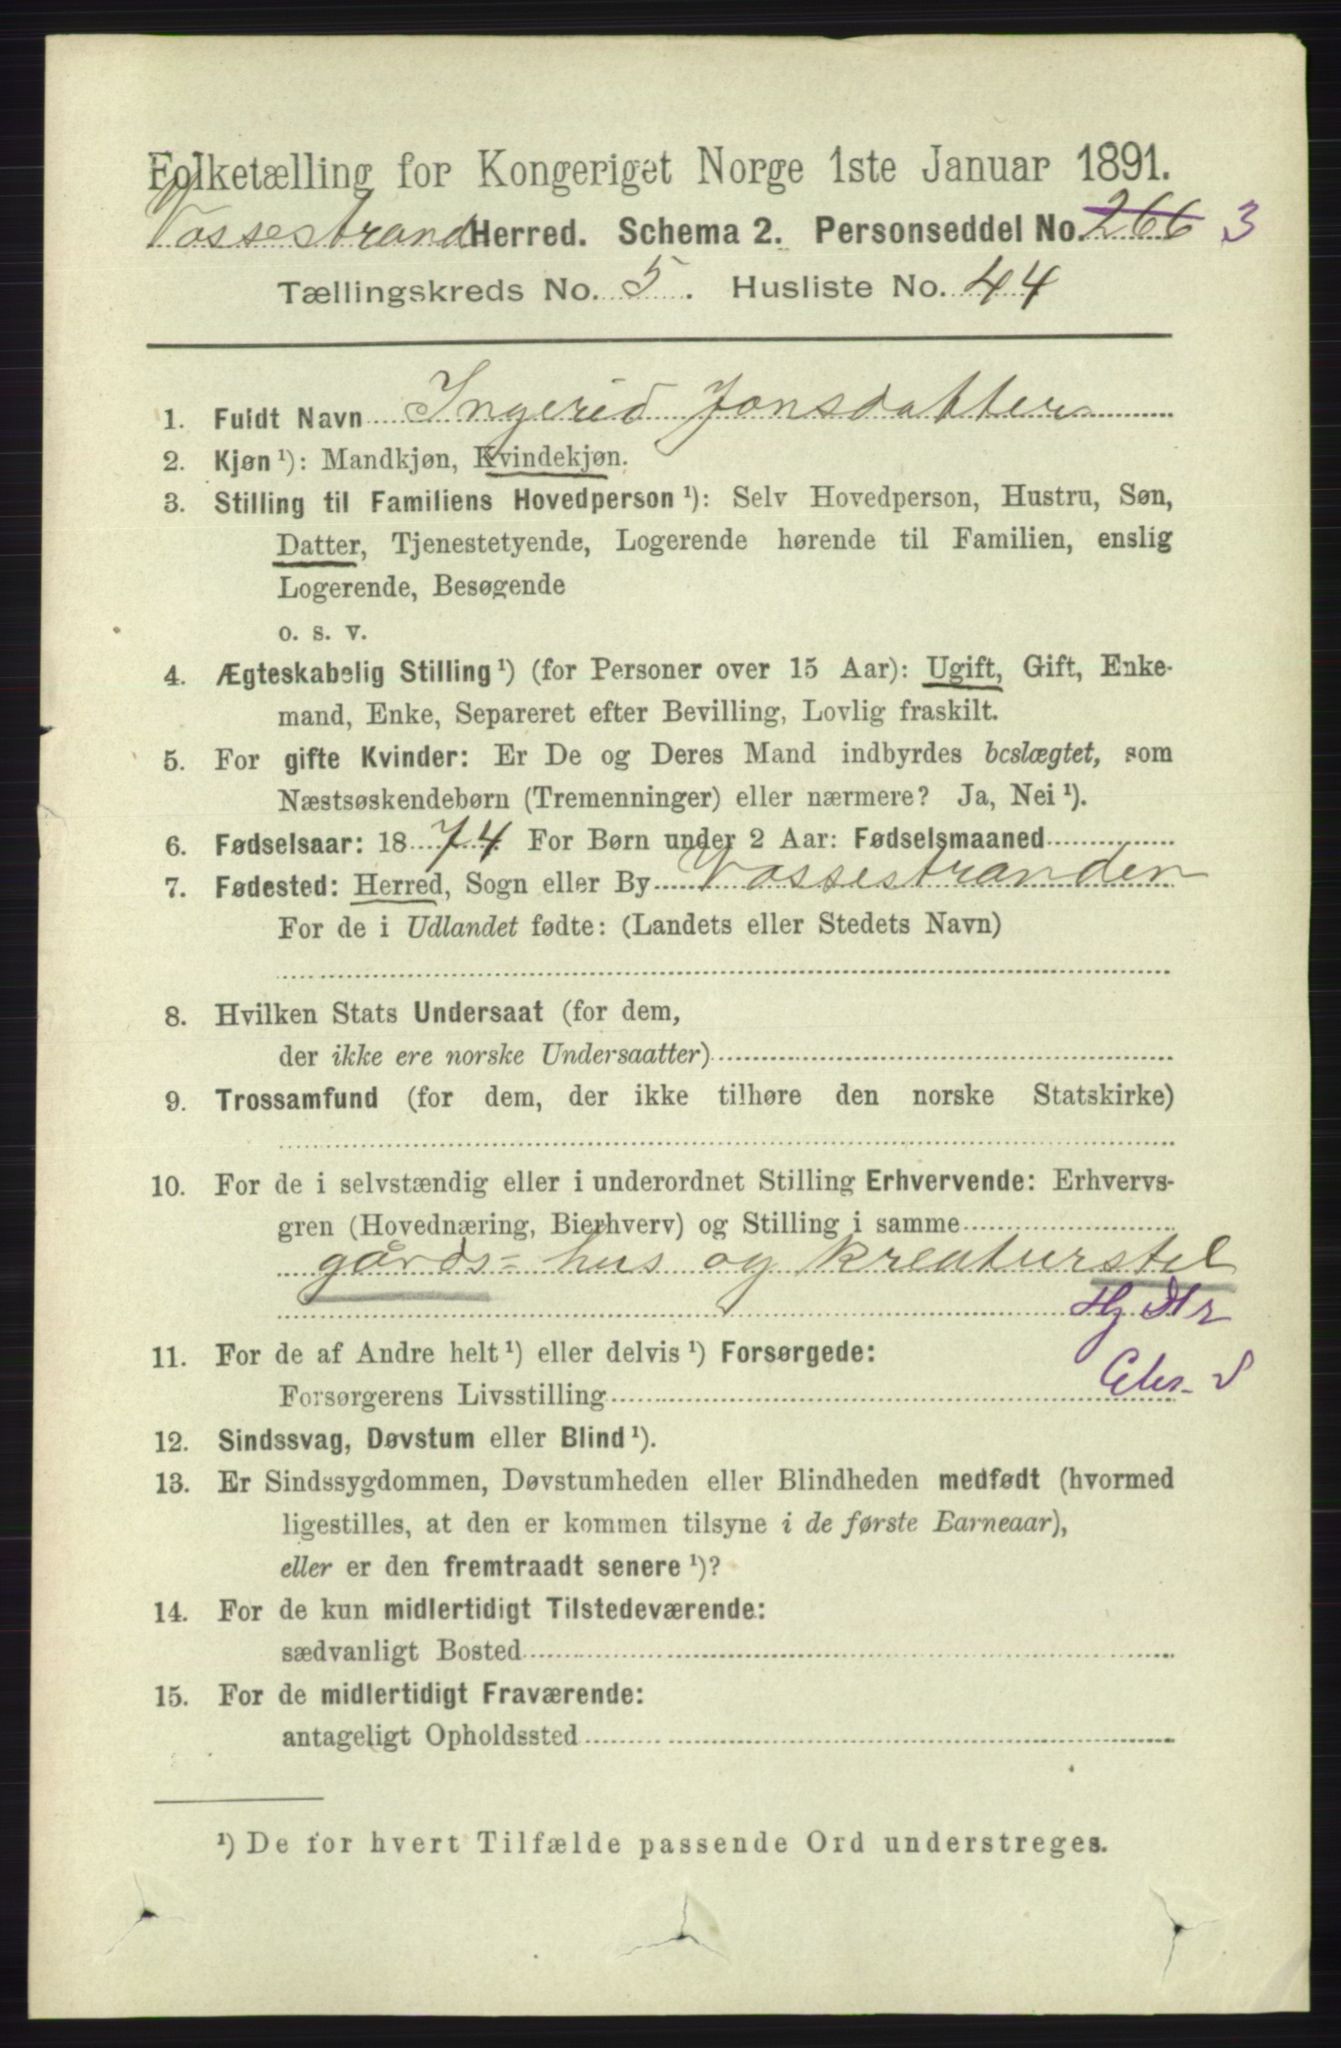 Folketælling for Kongeriget Norge 1ste Januar 1891.
Vossestrand Herred. Schema 2. Personseddel No. 266 3
Tællingskreds No. 5. Husliste No. 44
1. Fuldt Navn Ingerid Jonsdatter
2. Kjøn ¹): Mandkjøn, Kvindekjøn.
3. Stilling til Familiens Hovedperson ¹): Selv Hovedperson, Hustru, Søn,
Datter, Tjenestetyende, Logerende hørende til Familien, enslig
Logerende, Besøgende
o. s. v.
4. Ægteskabelig Stilling ¹) (for Personer over 15 Aar): Ugift, Gift, Enke-
mand, Enke, Separeret efter Bevilling, Lovlig fraskilt.
5. For gifte Kvinder: Er De og Deres Mand indbyrdes beslægtet, som
Næstsøskendebørn (Tremenninger) eller nærmere? Ja, Nei ¹).
6. Fødselsaar: 1874 For Børn under 2 Aar: Fødselsmaaned
7. Fødested: Herred, Sogn eller By Vossestranden
For de i Udlandet fødte: (Landets eller Stedets Navn)
8. Hvilken Stats Undersaat (for dem,
der ikke ere norske Undersaatter)
9. Trossamfund (for dem, der ikke tilhøre den norske Statskirke)
10. For de i selvstændig eller i underordnet Stilling Erhvervende: Erhvervs-
gren (Hovednæring, Bierhverv) og Stilling i samme
gårds- hus og kreaturstel
11. For de af Andre helt ¹) eller delvis ¹) Forsørgede:
Forsørgerens Livsstilling
12. Sindssvag, Døvstum eller Blind ¹).
13. Er Sindssygdommen, Døvstumheden eller Blindheden medfødt (hvormed
ligestilles, at den er kommen tilsyne i de første Barneaar),
eller er den fremtraadt senere ¹)?
14. For de kun midlertidigt Tilstedeværende:
sædvanligt Bosted
15. For de midlertidigt Fraværende:
antageligt Opholdssted
¹) De for hvert Tilfælde passende Ord understreges.